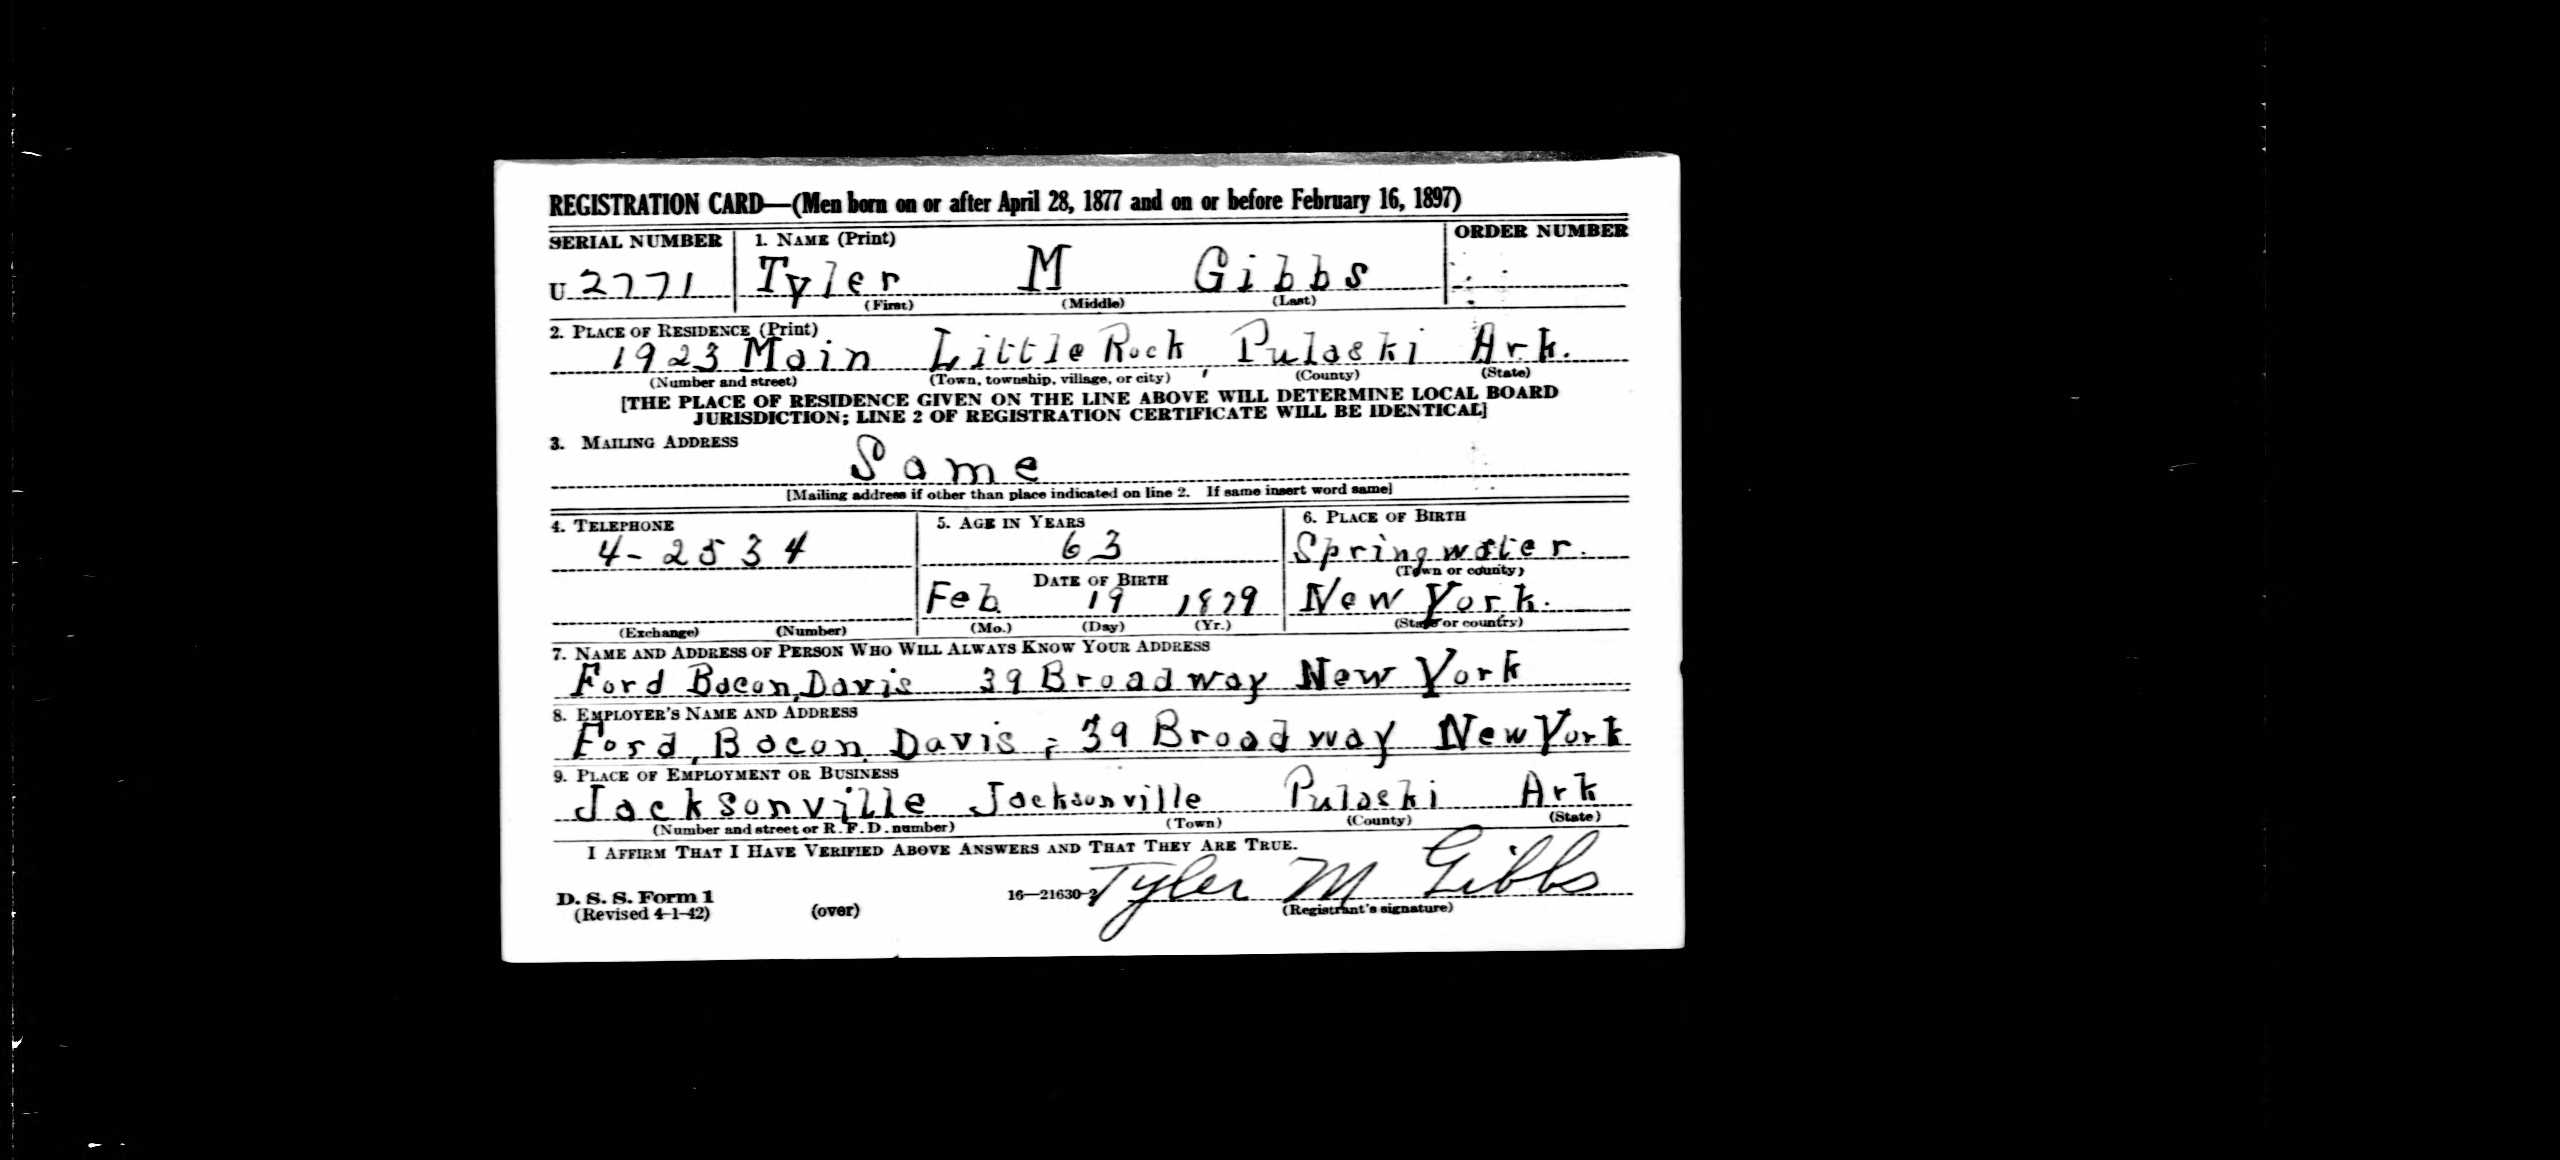 REGISTRATION CARD—(Men born on or after April 28, 1877 and on or before February 16, 1897)
SERIAL NUMBER 1. NAME (Print) ORDER NUMBER
U 2771 Tyler M Gibbs
(First) (Middle) (Last)
2. PLACE OF RESIDENCE (Print)
1923 Main Little Rock, Pulaski Ark.
(Number and street) (Town, township, village, or city) (County) (State)
[THE PLACE OF RESIDENCE GIVEN ON THE LINE ABOVE WILL DETERMINE LOCAL BOARD
JURISDICTION; LINE 2 OF REGISTRATION CERTIFICATE WILL BE IDENTICAL]
3. MAILING ADDRESS
Same
[Mailing address if other than place indicated on line 2. If same insert word same]
4. TELEPHONE 5. AGE IN YEARS 6. PLACE OF BIRTH
4-2534 63 Springwater.
(Town or county)
DATE OF BIRTH
Feb 19 1879 New York.
(Exchange) (Number) (Mo.) (Day) (Yr.) (State or country)
7. NAME AND ADDRESS OF PERSON WHO WILL ALWAYS KNOW YOUR ADDRESS
Ford Bacon, Davis 39 Broadway New York
8. EMPLOYER'S NAME AND ADDRESS
Ford, Bacon Davis; 39 Broadway New York
9. PLACE OF EMPLOYMENT OR BUSINESS
Jacksonville Jacksonville Pulaski Ark
(Number and street or R. F. D. number) (Town) (County) (State)
I AFFIRM THAT I HAVE VERIFIED ABOVE ANSWERS AND THAT THEY ARE TRUE.
D. S. S. Form 1 16—21630-2 Tyler M Gibbs
(Revised 4-1-42) (over) (Registrant's signature)